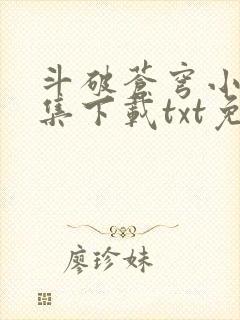 斗破苍穹小
集下载txt免
廖珍妹